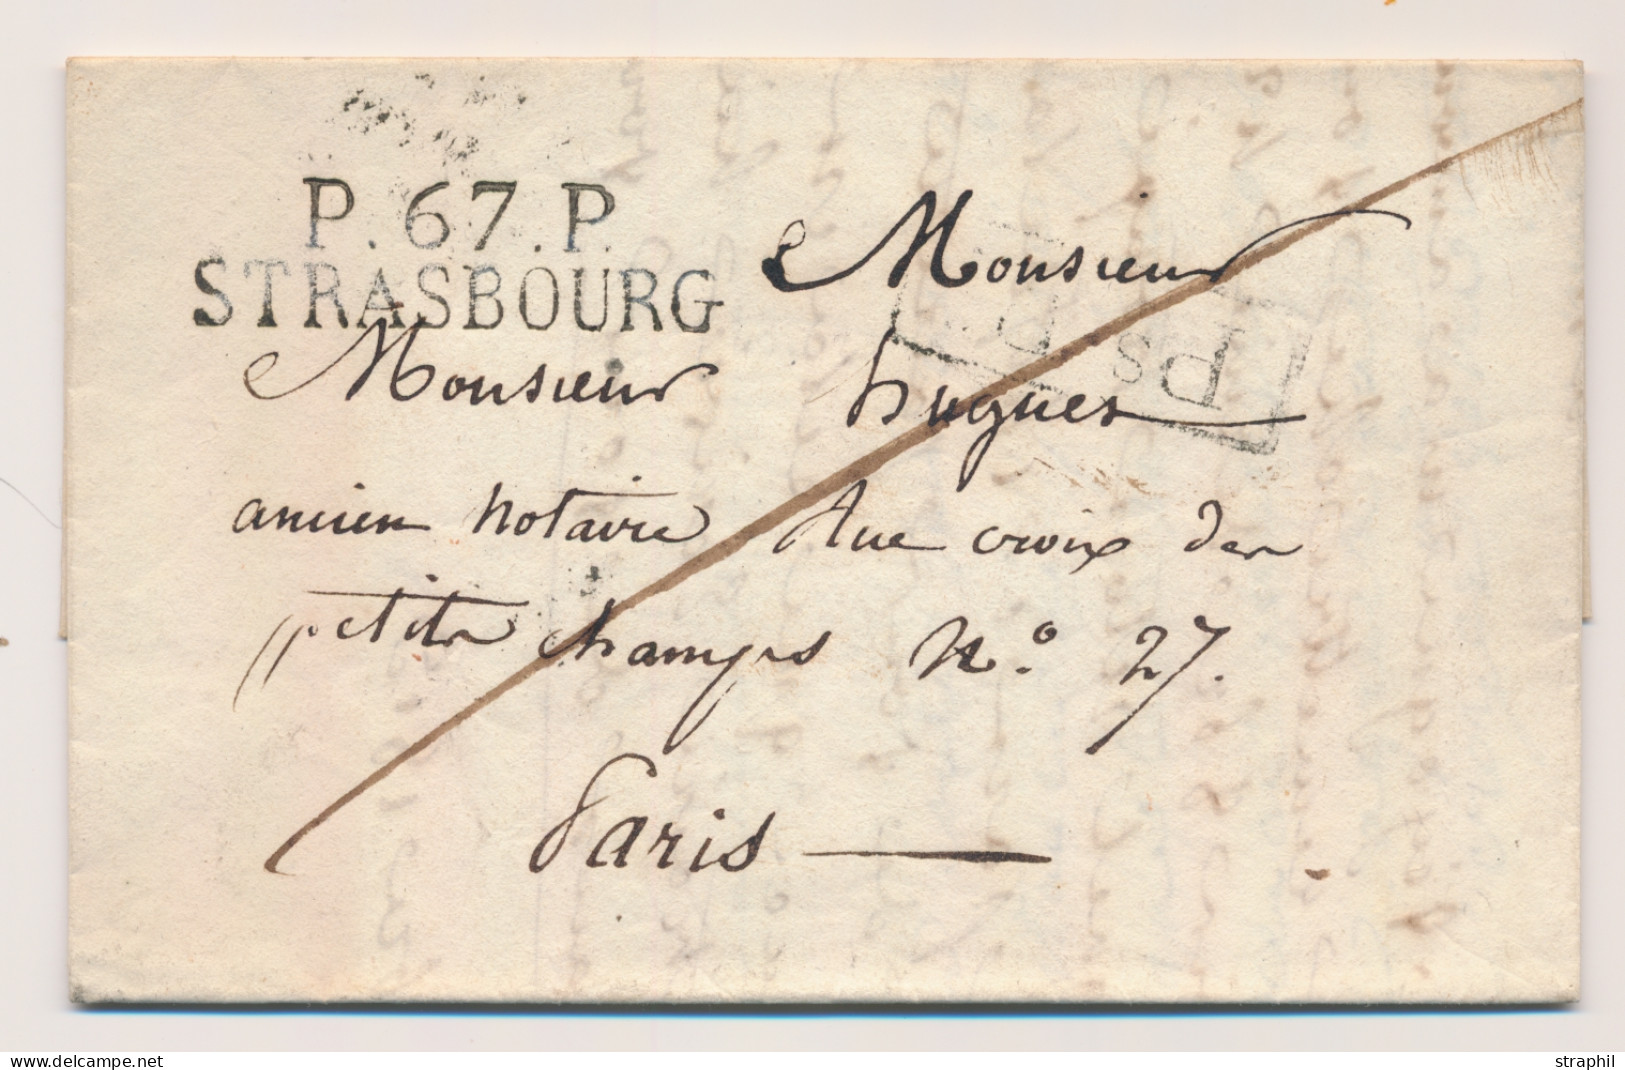 P.67.P.
STRASBOURG
Monsieur
Monsieur hugues
Ps P.
ancien notaire Rue croix des
petits champs N.° 27.
Paris
delcampe.net
straphil